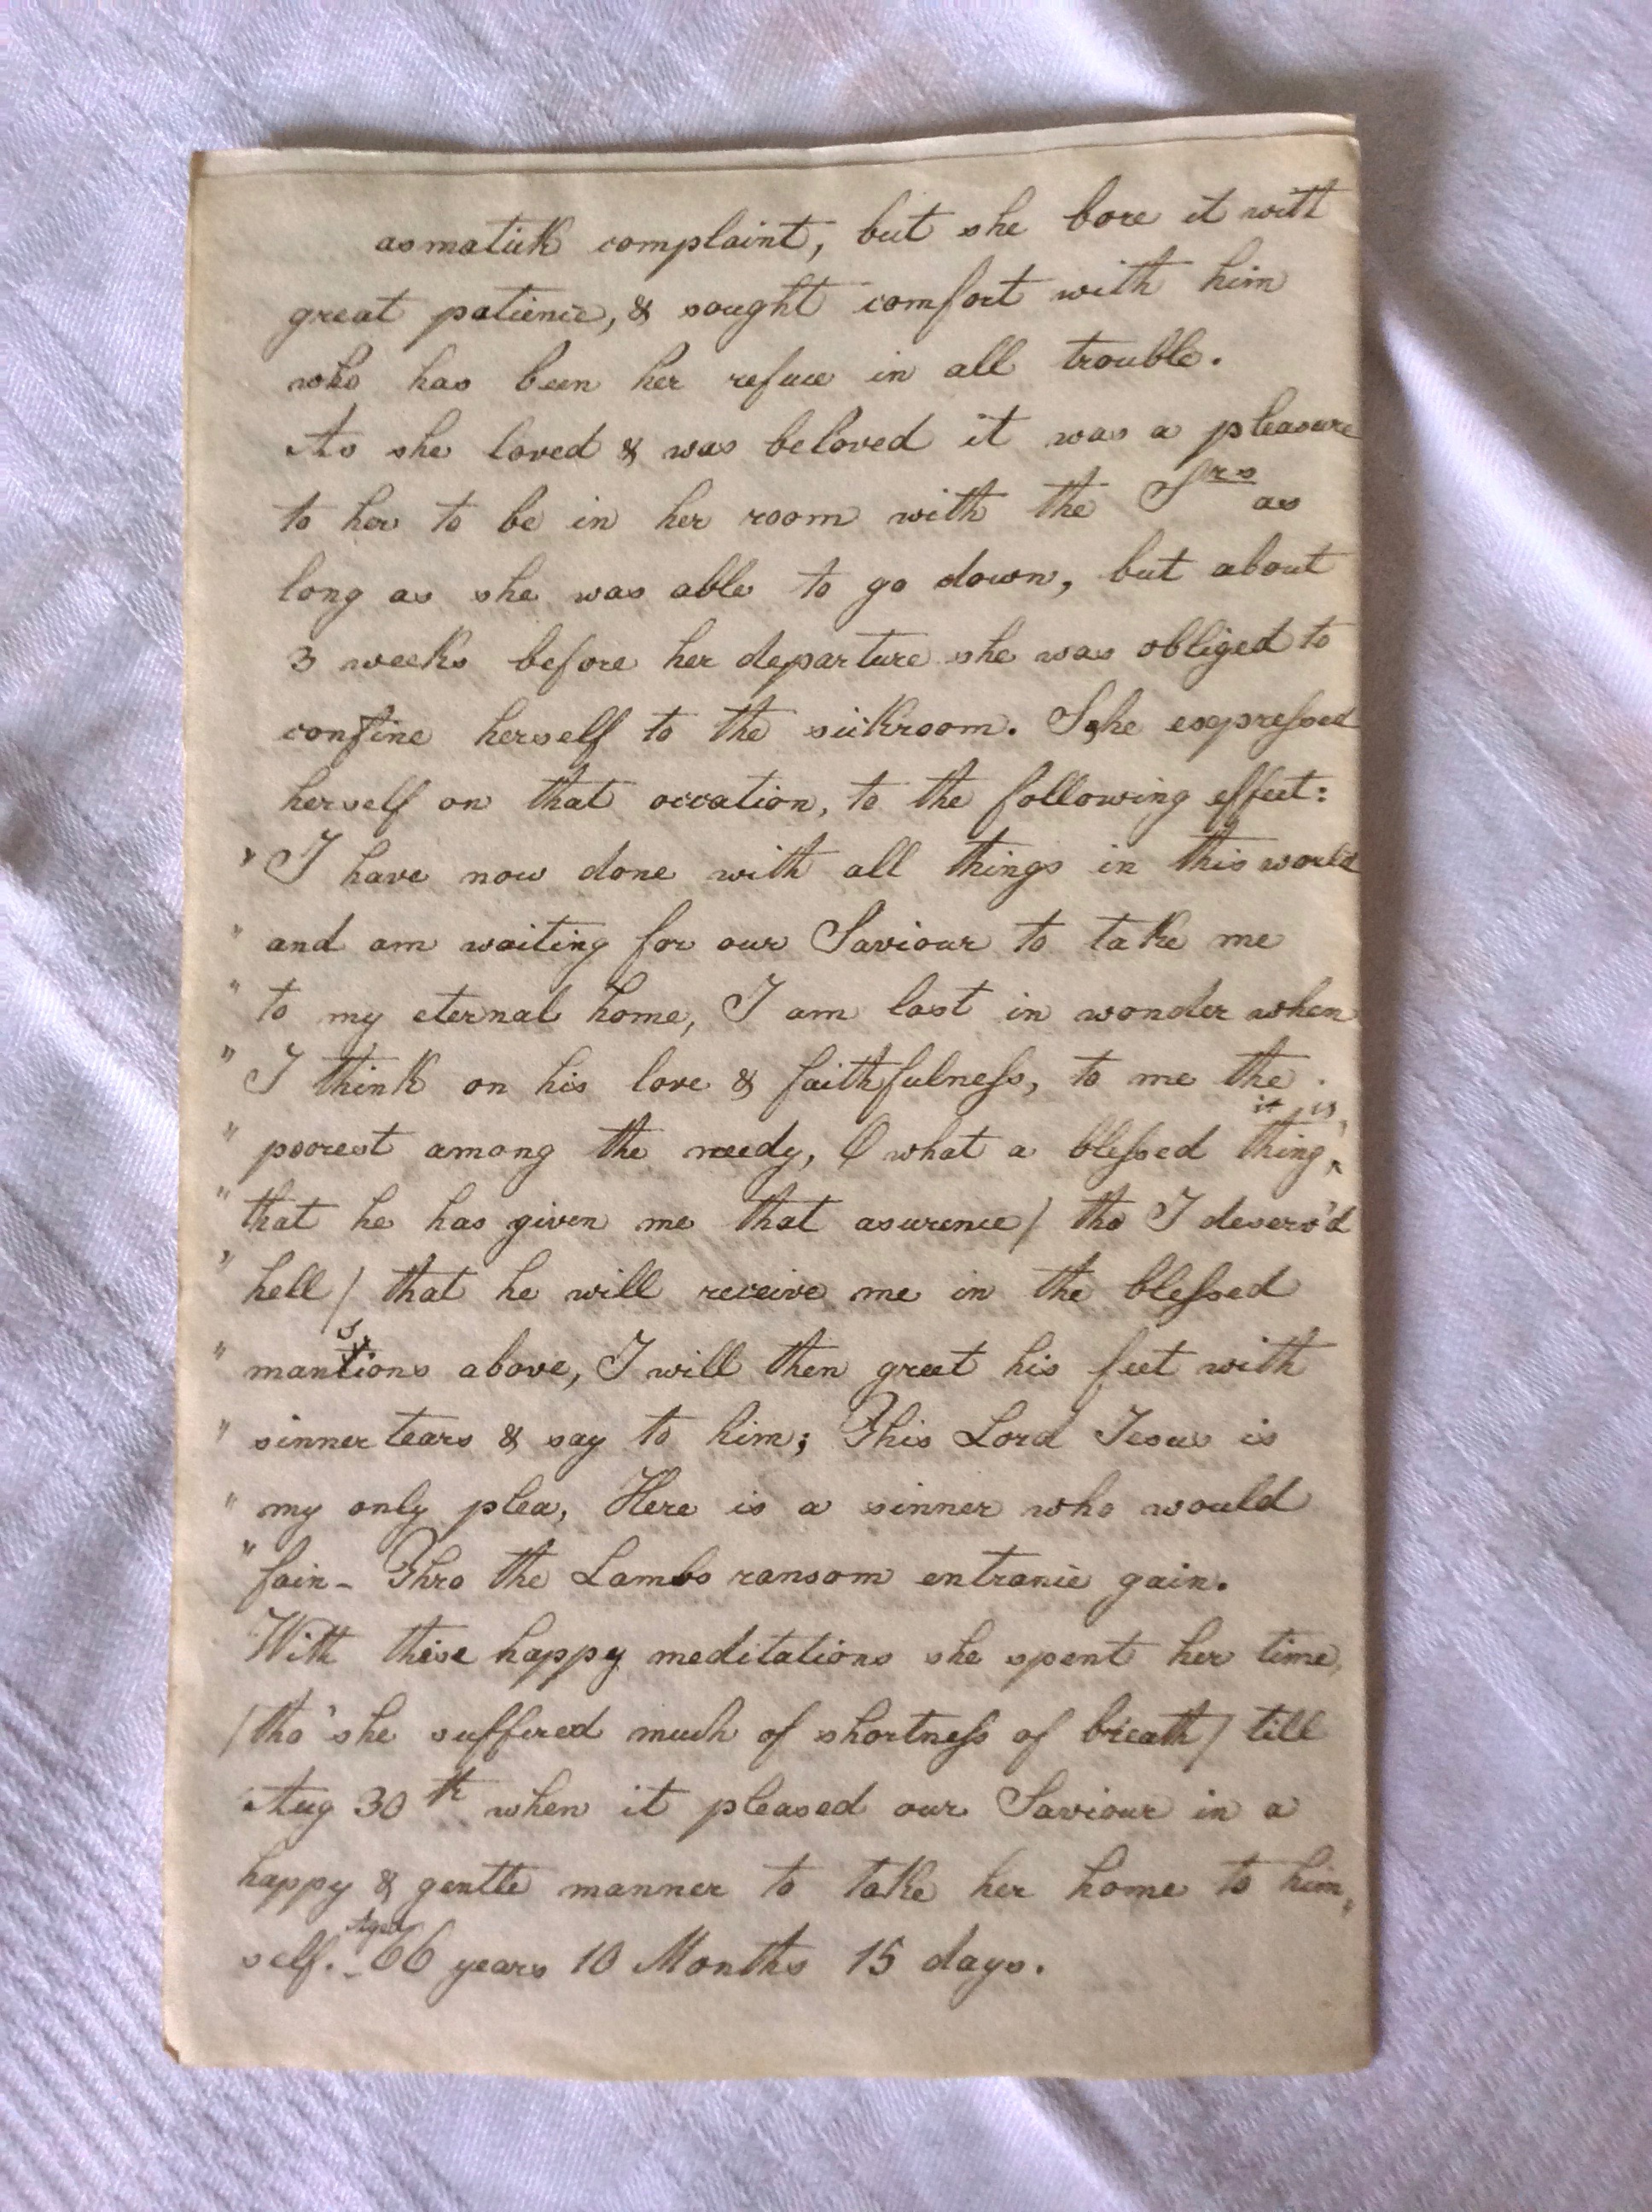 asmatick complaint, but she bore it with
great patience, & sought comfort with him
who has been her refuce in all trouble.
As she loved & was beloved it was a pleasure
to her to be in her room with the Srs as
long as she was able to go down, but about
3 weeks before her departure she was obliged to
confine herself to the sickroom. She expressed
herself on that occation, to the following effect:
" I have now done with all things in this world
" and am waiting for our Saviour to take me
" to my eternal home, I am lost in wonder when
" I think on his love & faithfulness, to me the
" poorest among the needy, O what a blessed thing it is,
" that he has given me that asurence / tho I deserv'd
" hell / that he will receive me in the blessed
" mansions above, I will then greet his feet with
" sinner tears & say to him; This Lord Jesus is
" my only plea, Here is a sinner who would
" fain - Thro the Lambs ransom entrance gain.
With these happy meditations she spent her time,
/ tho' she suffered much of shortness of breath / till
Aug 30th when it pleased our Saviour in a
happy & gentle manner to take her home to him„
self. - Aged 66 years 10 Months 15 days.